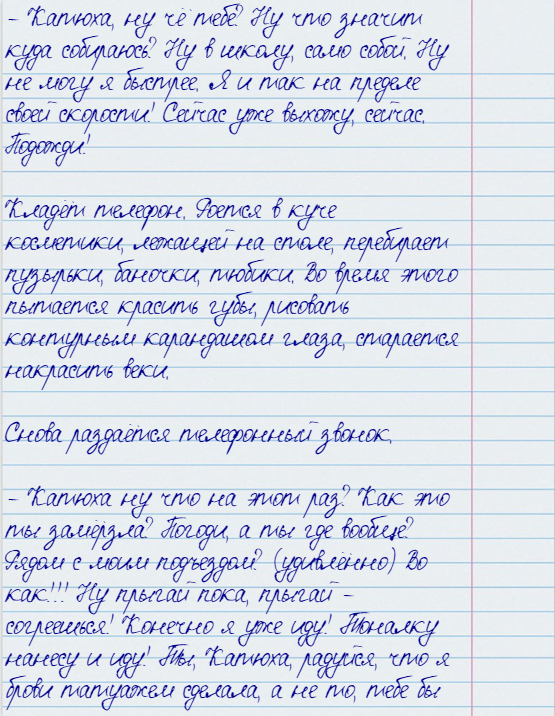 - Катюха, ну чё тебе? Ну что значит
куда собираюсь? Ну в школу, само собой. Ну
не могу я быстрее. Я и так на пределе
своей скорости! Сейчас уже выхожу, сейчас.
Подожди!
Кладёт телефон. Роется в куче
косметики, лежащей на столе, перебирает
пузырьки, баночки, тюбики. Во время этого
пытается красить губы, рисовать
контурным карандашом глаза, старается
накрасить веки.
Снова раздаётся телефонный звонок.
- Катюха ну что на этот раз? Как это
ты замёрзла? Погоди, а ты где вообще?
Рядом с моим подъездом? (удивлённо) Во
как!!! Ну прыгай пока, прыгай -
согреешься! Конечно я уже иду! Тоналку
нанесу и иду! Ты, Катюха, радуйся, что я
брови татуажем сделала, а не то, тебе бы